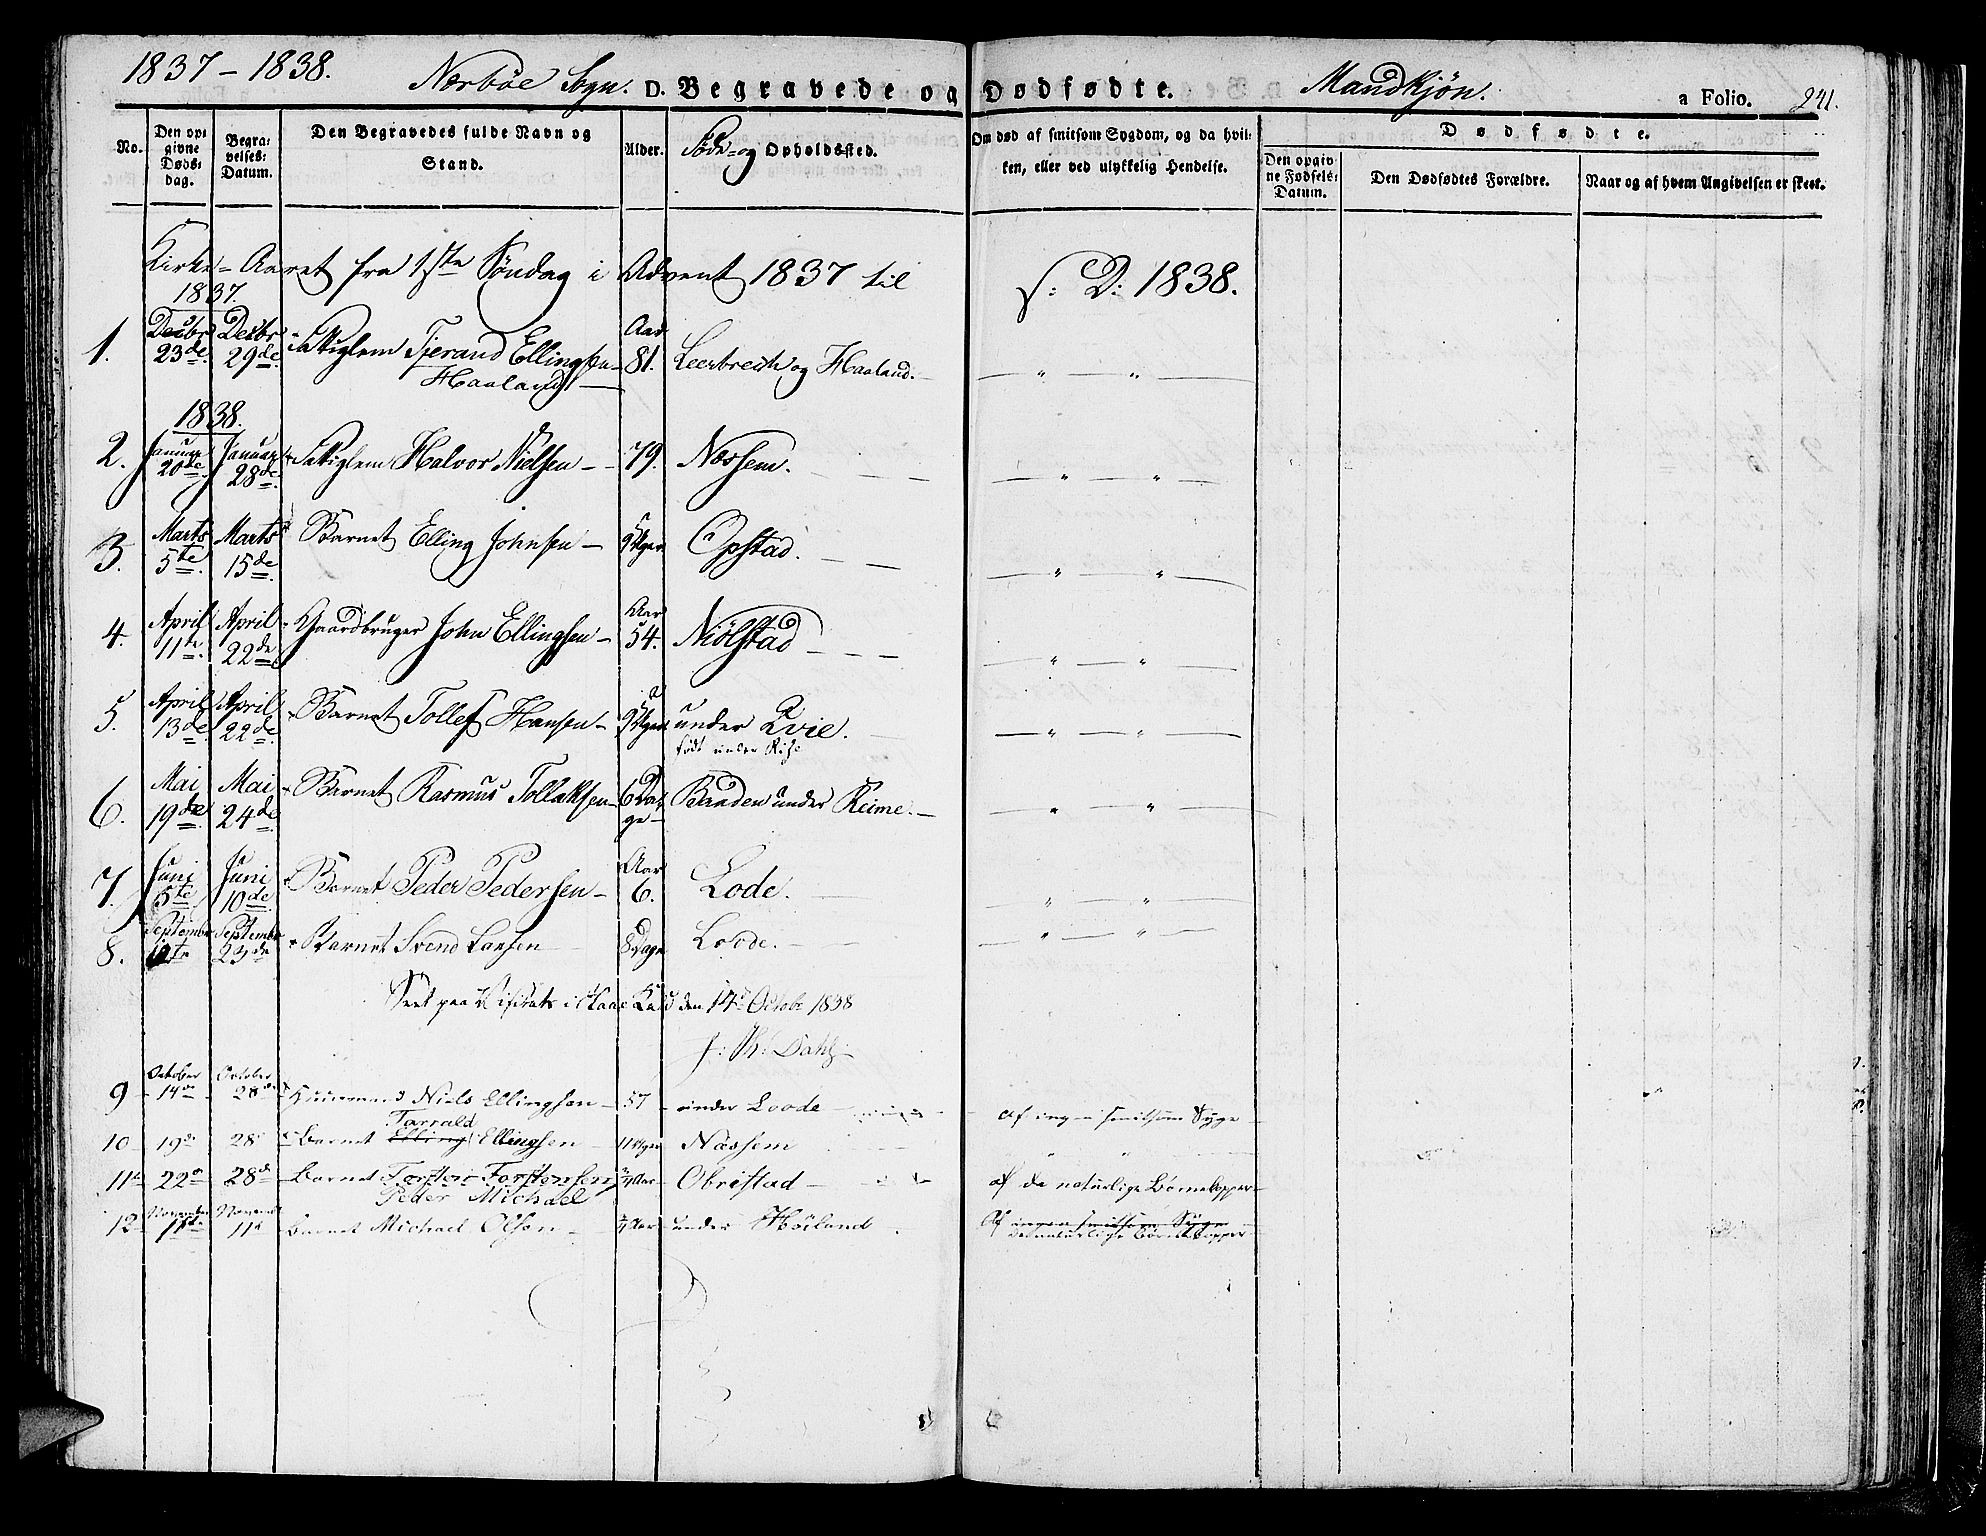 1837 - 1838. Nærbøe Sogn. D. Begravede og Dødfødte. Mandkjøn. a Folio. 241.
No. Den opgivne Dødsdag. Begravelses Datum. Den Begravedes fulde Navn og Stand. Alder. Føde- og Opholdssted. Om død af smitsom Sygdom, og da hvilken, eller ved ulykkelig Hendelse. Dødfødte. Den opgivne Fødsels-Datum. Den Dødfødtes Forældre. Naar og af hvem Angivelsen er skeet.
Kirke-Aaret fra 1ste Søndag i Advent 1837 til S: D: 1838.
1837.
1. Decbr 23de. Decbr 29de. Tjerand Ellingsen Haaland Aar 81. og Haaland. - " - " -
1838.
2. Januar 20de. Januar 28de. Halvor Nielsen - 79. Næssem. - " - " -
3. Marts 5te. Marts 15de. Barnet Elling Johnsen - 9 Uger Opstad. - " - " -
4. April 11te. April 22de. Gaardbruger John Ellingsen - Aar 54. Niølstad - " - " -
5. April 13de. April 22de. Barnet Tollef Hansen - 9 Uger under Qvie. - " - " -
født under Rise
6. Mai 19de. Mai 24de. Barnet Rasmus Tollaksen - 6 Dage - under Reime. - " - " -
7. Juni 5te. Juni 10de. Barnet Peder Pedersen - Aar 6. Lode. - " - " -
8. September September 23de Barnet Svend Larsen 8 Dage Loode. - " - " -
Seet paa Visitats i Haae Kald den 14de Octobr 1838
9 October 14de October 28de Huusmand Niels Ellingsen - 57 - under Loode - af ingen smitsom Syge
10 19de 28de Barnet Tarrald Elling Ellingsen 11 Uger Næssem " "
11 22de 28de Barnet Torsten Torstensen Aar - Obrestad - af de naturlige Børnekopper
Peder Michael
12 November 11de November 11de Barnet Michael Olsen - Aar under Høiland. Af ingen smitsom Syge
de naturlige Børnekopper